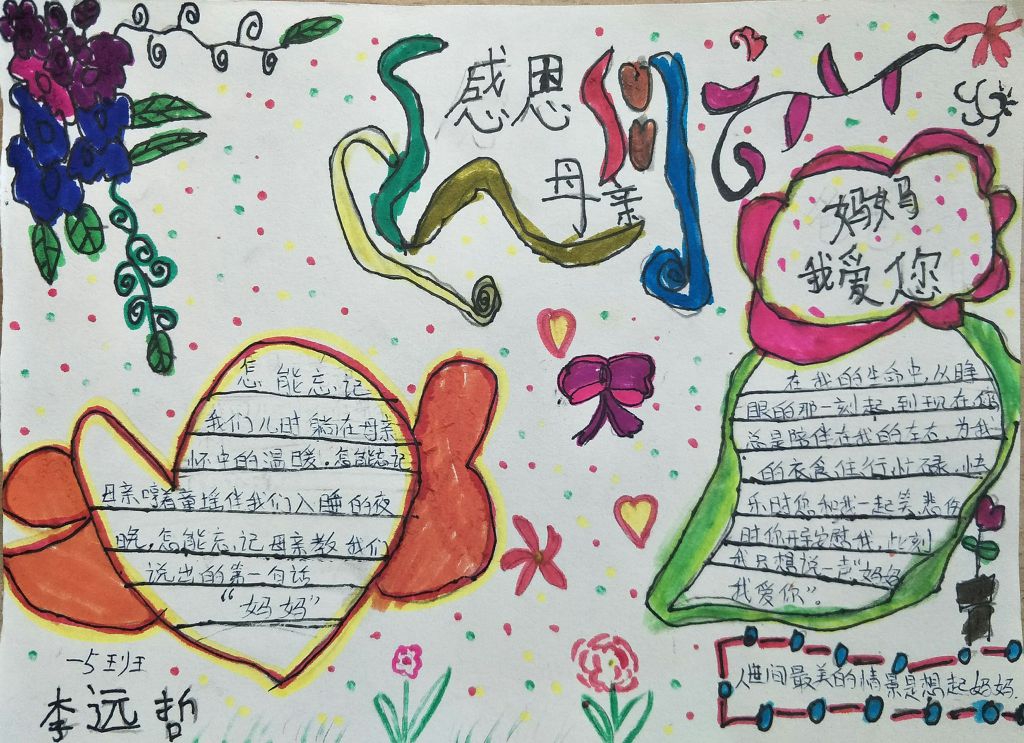 感恩
母亲
妈妈
我爱您
怎能忘记
我们儿时躺在母亲
怀中的温暖。怎能忘记
母亲哼着童瑶伴我们入睡的夜
晚，怎能忘记母亲教我们
说出的第一句话
“妈妈”
在我的生命中，从睁
眼的那一刻起，到现在您
总是陪伴在我的左右，为我
的衣食住行忙碌，快
乐时您和我一起笑，悲伤
时你开安慰我，此刻
我只想说一声“妈妈
我爱你”。
一5班
李远哲
人世间最美的情景是想起妈妈.